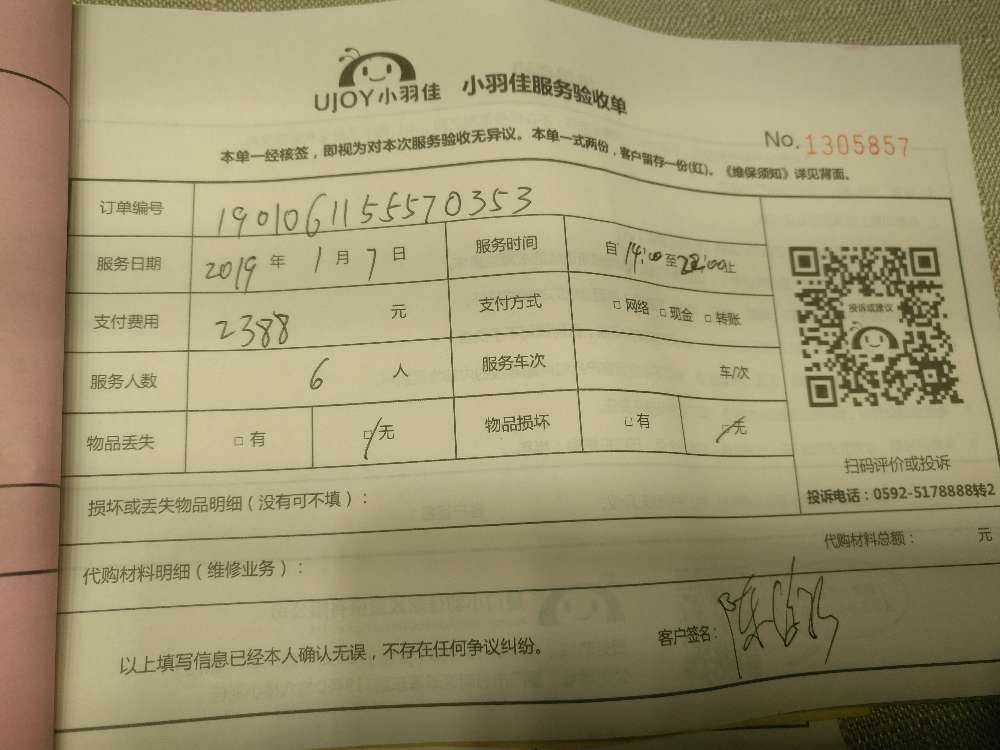 UJOY小羽佳 小羽佳服务验收单
No. 1305857
本单一经核签，即视为对本次服务验收无异议。本单一式两份，客户留存一份(红)。《维保须知》详见背面。
订单编号 190106115557 0353
服务日期 2019 年 1 月 7 日 服务时间 自 14:00 至 22:00 止
支付费用 2388 元 支付方式 □ 网络 □ 现金 □ 转账
服务人数 6 人 服务车次 车/次
物品丢失 □ 有 □ 无 物品损坏 □ 有 □ 无
投诉或建议
扫码评价或投诉
投诉电话：0592-5178888转2
损坏或丢失物品明细（没有可不填）：
代购材料明细（维修业务）： 代购材料总额： 元
以上填写信息已经本人确认无误，不存在任何争议纠纷。 客户签名：